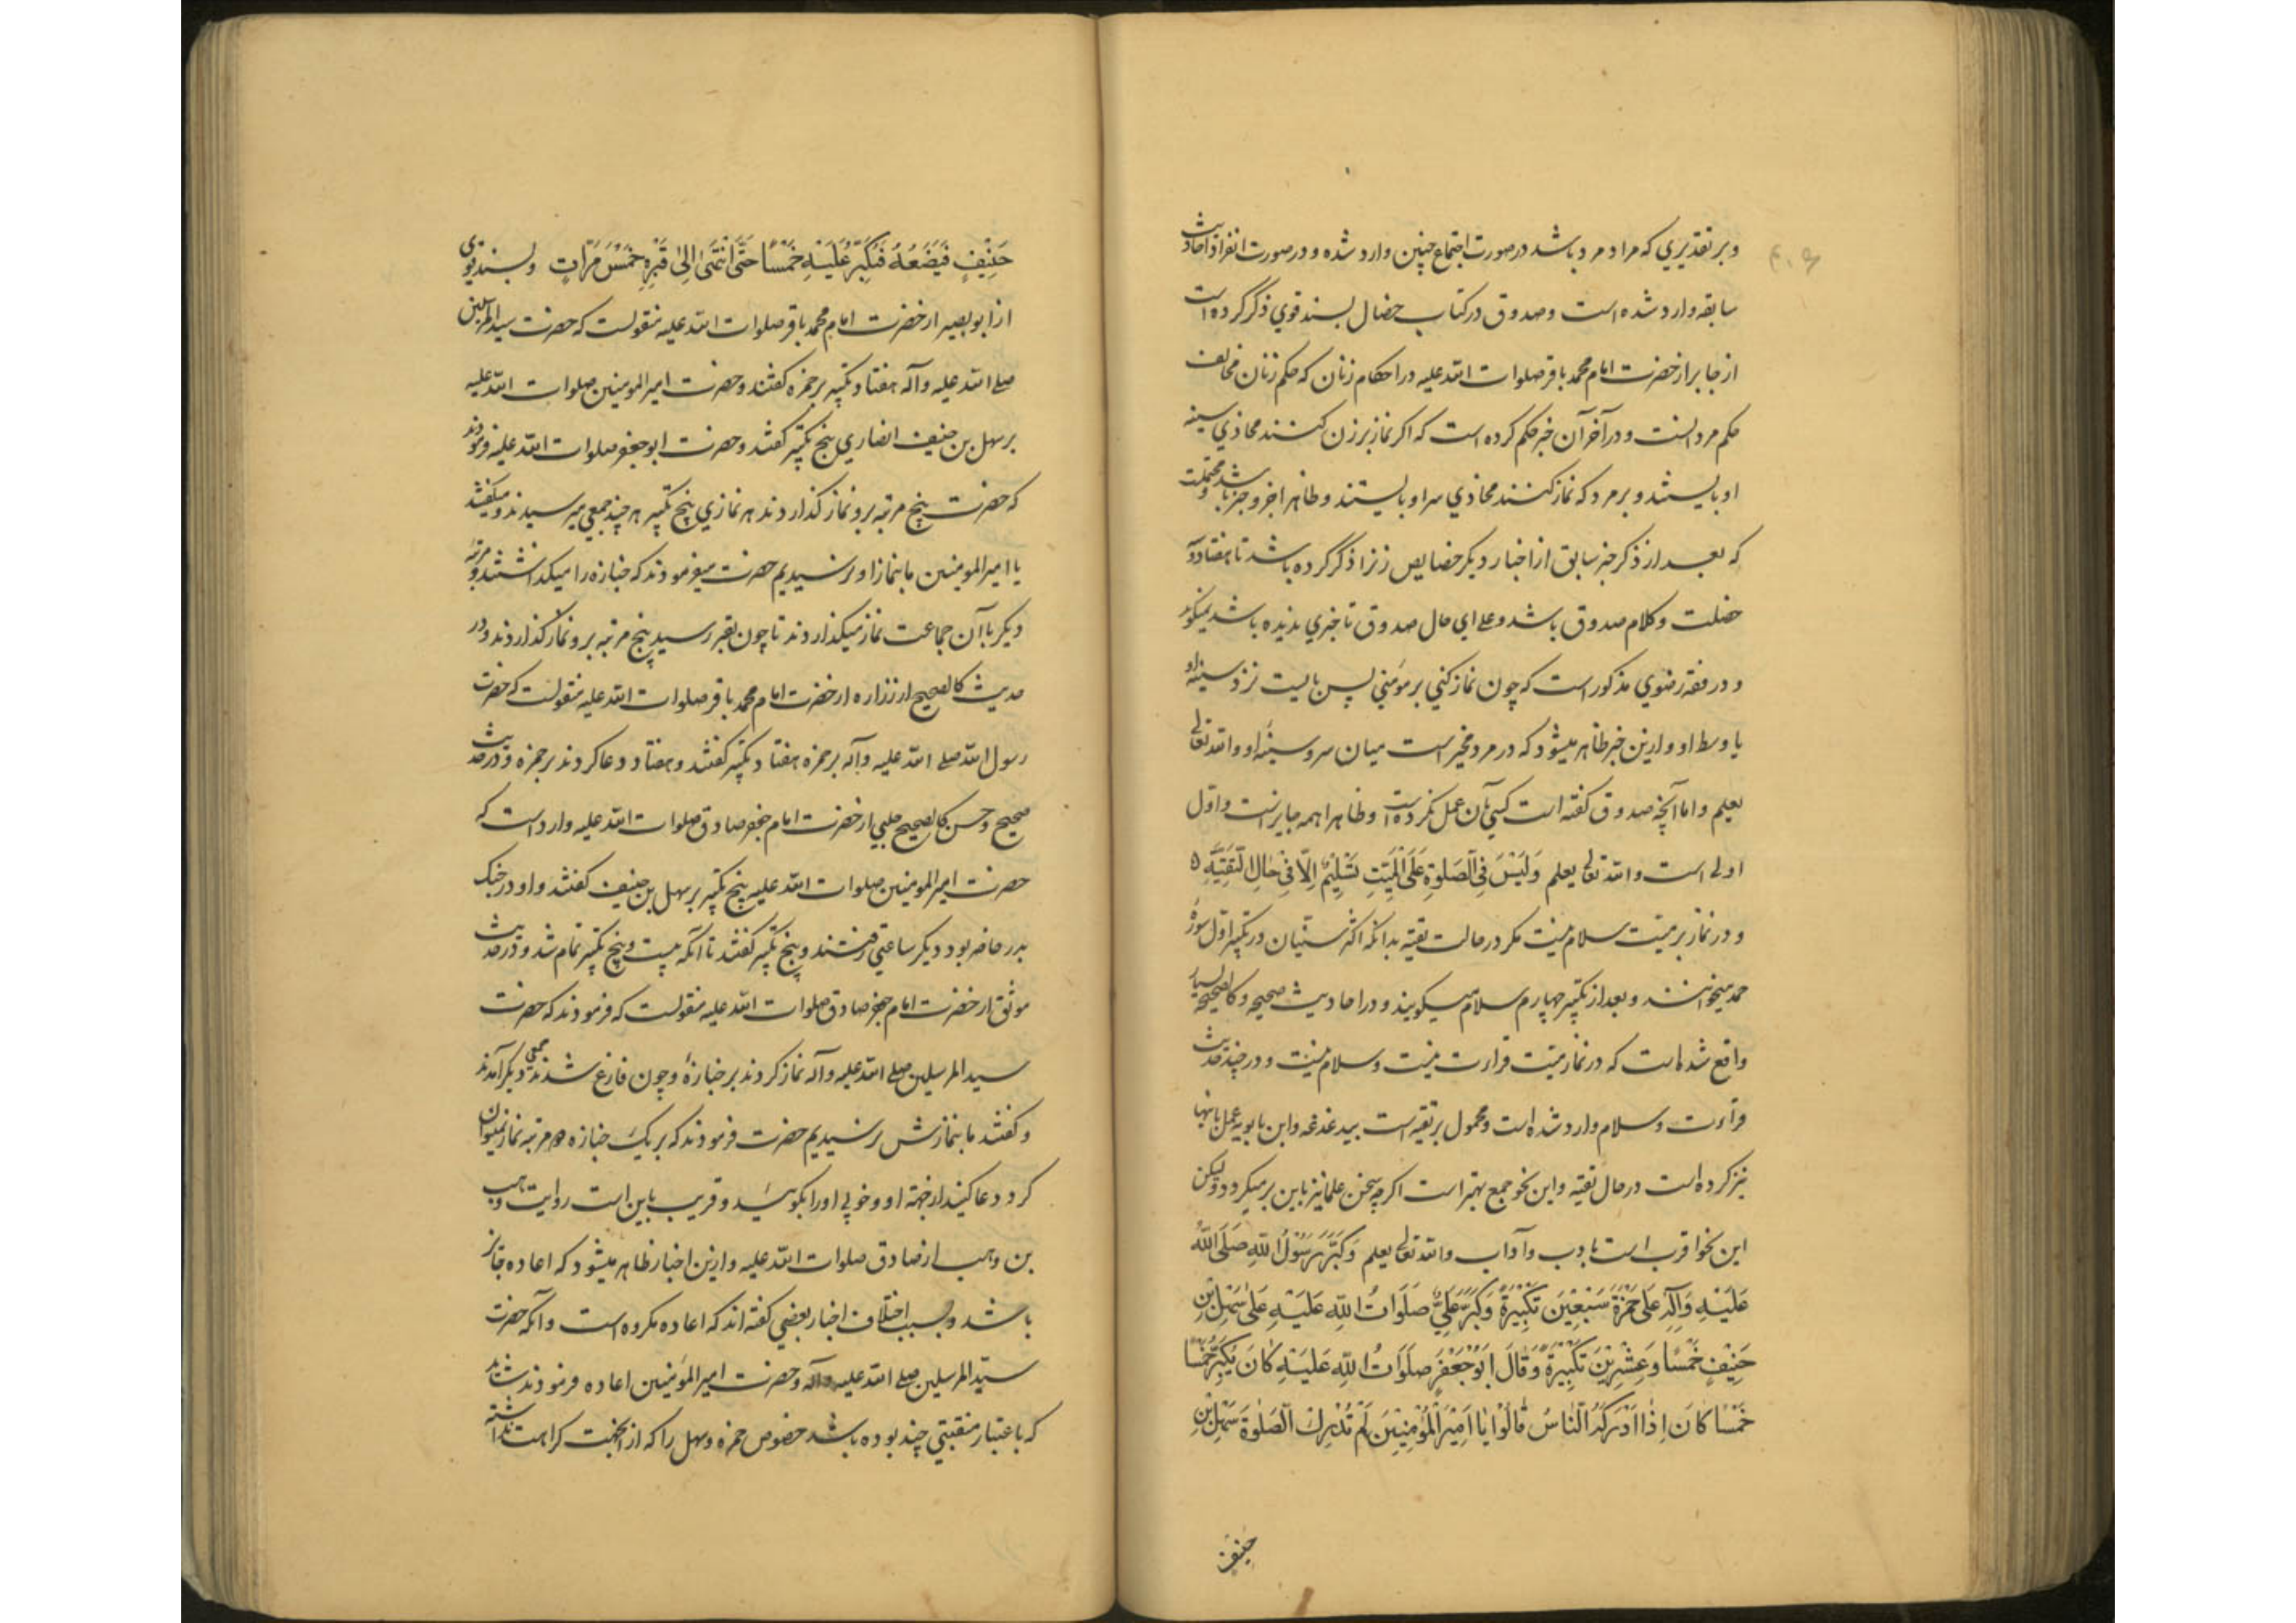 وبر تقدیري که مراد مرد باشد در صورت اجتماع چنین وارد شده و در صورت انفراد احادیث
سابقه وارد شده است و صدوق در کتاب خصال بسند قوي ذکر کرده است
از جابر از حضرت امام محمد باقر صلوات الله علیه در احکام زنان که حکم زنان مخالف
حکم مردانست و در آخر آن خبر حکم کرده است که اکر نماز بر زن کنند محاذي سینه
او بایستند و بر مرد که نماز کنند محاذي سر او بایستند و ظاهرا جزو خبر باشد و محتملست
که بعد از ذکر خبر سابق از اخبار دیکر خصایص زنرا ذکر کرده باشد تا هفتاد و
خصلت و کلام صدوق باشد و علي اي حال صدوق تا خبري ندیده باشد نمیکوید
و در فقه رضوي مذکور است که چون نماز کني بر مؤمني پس بایست نزد سینه او
یا وسط او و ازین خبر ظاهر میشود که در مرد مخیر است میان سر و سینه او و الله تعالی
یعلم و اما آنچه صدوق کفته است کسي بآن عمل نکرده است و ظاهرا همه جایز است و اول
اولی است و الله تعالی یعلم وَلَیْسَ فِی الصَّلوةِ عَلَی الْمَیِّتِ تَسْلِیْمٌ اِلّا فِیْ حالِ التَّقِیَّةِ
و در نماز بر میت سلام نیست مکر در حالت تقیه بدانکه اکثر سنیان در تکبیر اول سورهٔ
حمد میخوانند و بعد از تکبیر چهارم سلام میکویند و در احادیث صحیحه و کالصحیحه بسیار
واقع شده است که در نماز میت قراءت نیست و سلام نیست و در چند حدیث
قراءت و سلام وارد شده است و محمول بر تقیه است بیدغدغه و ابن بابویه عمل بآنها
نیز کرده است در حال تقیه و این نحو جمع بهتر است اکر چه سخن علما نیز باین برمیکردد و لیکن
این نحو اقرب است بادب و آداب و الله تعالی یعلم وَکَبَّرَ رَسُوْلُ اللهِ صَلَّی اللهُ
عَلَیْهِ وَآلِهِ عَلی حَمْزَةَ سَبْعِیْنَ تَکْبِیْرَةً وَکَبَّرَ عَلِيٌّ صَلَوَاتُ اللهِ عَلَیْهِ عَلی سَهْلِ بْنِ
حَنِیْفٍ خَمْسًا وَعِشْرِیْنَ تَکْبِیْرَةً وَقَالَ اَبُوْ جَعْفَرٍ صَلَوَاتُ اللهِ عَلَیْهِ کَانَ یُکَبِّرُ خَمْسًا
خَمْسًا کَانَ اِذَا اَدْرَکَهُ النَّاسُ قَالُوْا یَا اَمِیْرَ الْمُؤْمِنِیْنَ لَمْ نُدْرِكِ الصَّلوةَ سَهْلِ بْنِ
حنیف
حَنِیْفٍ فَیَضَعُهُ فَیُکَبِّرُ عَلَیْهِ خَمْسًا حَتّی انْتَهی اِلی قَبْرِهِ خَمْسَ مَرّاتٍ و بسند قوي
از ابو بصیر از حضرت امام محمد باقر صلوات الله علیه منقولست که حضرت سید المرسلین
صلی الله علیه و آله هفتاد تکبیر بر حمزه کفتند و حضرت امیر المومنین صلوات الله علیه
بر سهل بن حنیف انصاري پنج تکبیر کفتند و حضرت ابو جعفر صلوات الله علیه فرمودند
که حضرت پنج مرتبه برو نماز کذاردند هر نمازي پنج تکبیر هر چند جمعي میرسیدند و میکفتند
یا امیر المومنین ما بنماز او نرسیدیم حضرت میفرمودند که جنازه را میکذاشتند و مرتبه
دیکر با آن جماعت نماز میکذاردند تا چون بقبر رسید پنج مرتبه برو نماز کذاردند و در
حدیث کالصحیح از زراره از حضرت امام محمد باقر صلوات الله علیه منقولست که حضرت
رسول الله صلی الله علیه و آله بر حمزه هفتاد تکبیر کفتند و هفتاد دعا کردند بر حمزه و در حدیث
صحیح و حسن کالصحیح حلبي از حضرت امام جعفر صادق صلوات الله علیه وارد است که
حضرت امیر المومنین صلوات الله علیه پنج تکبیر بر سهل بن حنیف کفتند و او در جنک
بدر حاضر بود دیکر ساعتي رفتند و پنج تکبیر کفتند تا آنکه بیست و پنج تکبیر تمام شد و در حدیث
موثق از حضرت امام جعفر صادق صلوات الله علیه منقولست که فرمودند که حضرت
سید المرسلین صلی الله علیه و آله نماز کردند بر جنازهٔ و چون فارغ شدند جمعي دیکر آمدند
و کفتند ما بنمازش نرسیدیم حضرت فرمودند که بر یک جنازه دو مرتبه نماز نمیتوان
کرد دعا کنید از جهة او و خوبي او را بکوئید و قریب باین است روایت وهب
بن وهب از صادق صلوات الله علیه و ازین اخبار ظاهر میشود که اعاده جایز
باشد و بسبب اختلاف اخبار بعضي کفته اند که اعاده مکروه است و آنکه حضرت
سید المرسلین صلی الله علیه و آله و حضرت امیر المؤمنین اعاده فرمودند شاید
که باعتبار منقبتي چند بوده باشد خصوص حمزه و سهل را که از آنجهت کراهت نداشته